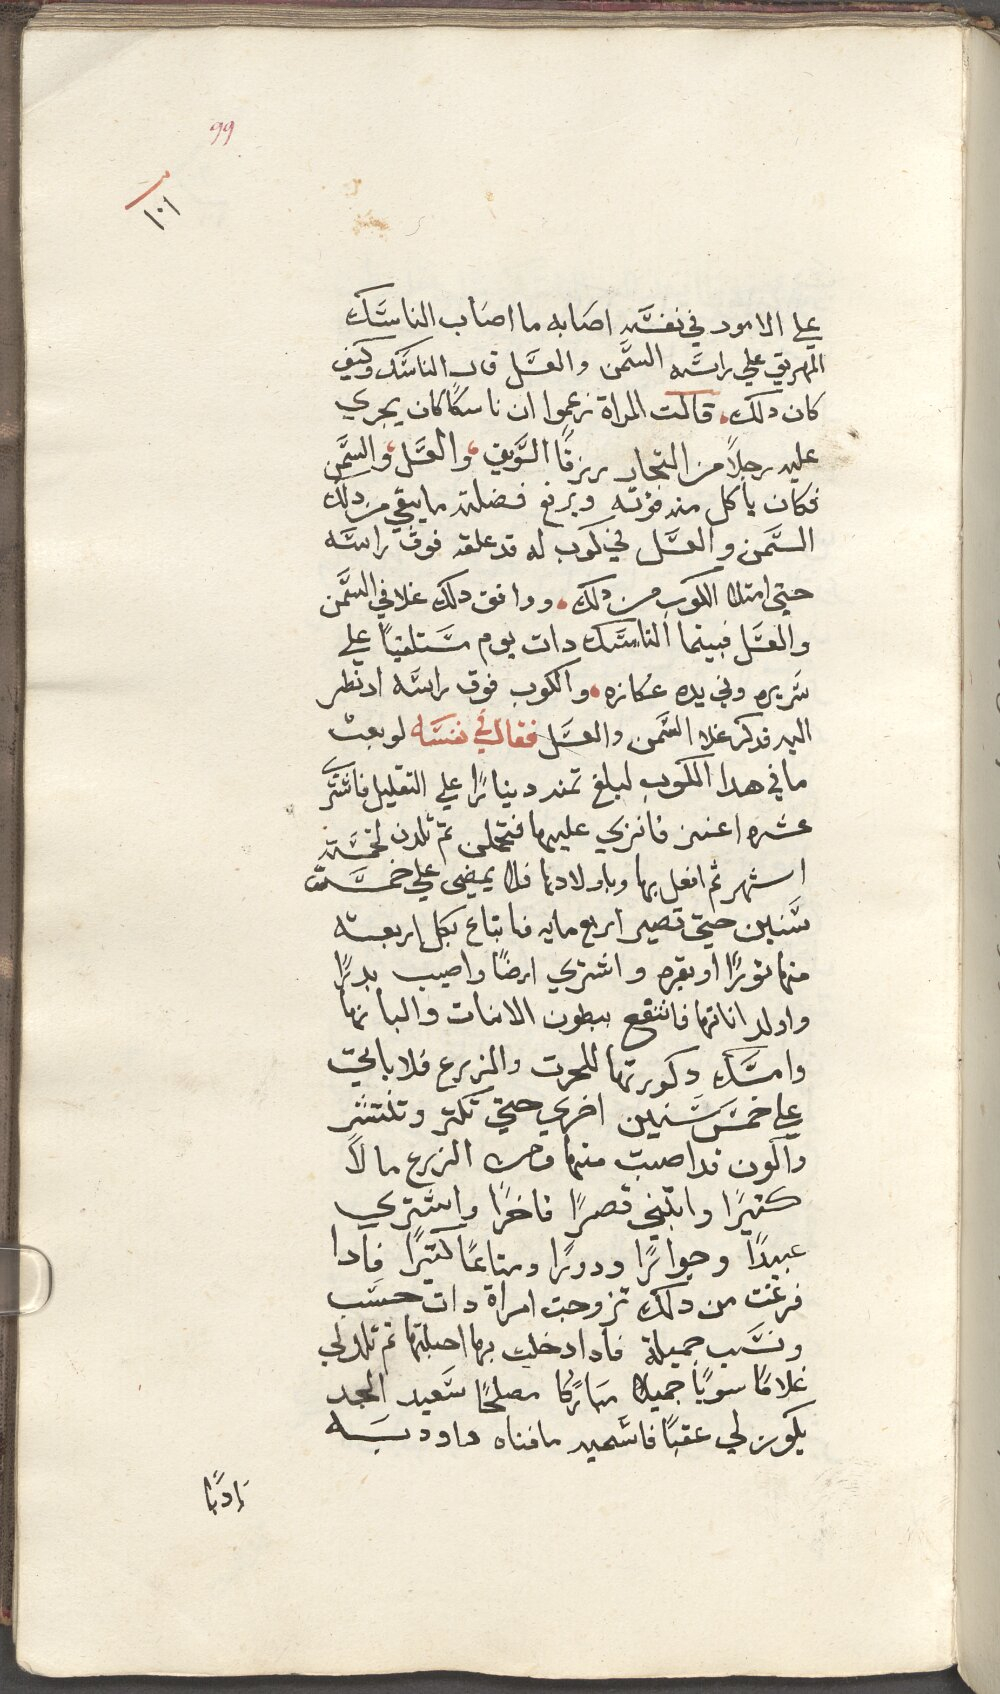 99
١٠١
علي الامور في نفسه اصابه ما اصاب الناسك
المهريق علي راسه السمن والعسل قال الناسك وكيف
كان دلك. قالت المراة زعموا ان ناسكًا كان يجري
عليه رجلاً من التجار رزقًا السويق، والعسل، والسمن
فكان ياكل منه قوته ويرفع فضلة ما يبقي من دلك
السمن والعسل في كوب له قد علقه فوق راسه
حتي امتلا الكوب من دلك. ووافق دلك غلا في السمن
والعسل فبينما الناسك دات يوم مستلقيًا علي
سريره وفي يده عكازه. والكوب فوق راسه اد نظر
اليه فدكر غلا السمن والعسل فقال في نفسه لو بعت
ما في هدا الكوب لبلغ تمنه دينارًا علي التقليل فاشتري
عشره اعنز فانزي عليها فتحملن تم تلدن لخمسة
اشهر تم افعل بها وباولادها فلا يمضي علي خمسة
سنين حتي تصير اربع مايه فابتاع بكل اربعة
منها تورًا او بقره واشتري ارضًا واصيب بدرًا
واولد اناتها فانتفع ببطون الانات والبانها
وامسك دكورتها للحرت والزرع فلا ياتي
علي خمس سنين اخري حتي تكتر وتنتشر
واكون قد اصبت منها ومن الزرع مالاً
كتيرًا وابتني قصرًا فاخرًا واشتري
عبيدًا وجوارًا ودورًا ومتاعًا كتيرًا فادا
فرغت من دلك تزوجت امراة دات حسب
ونسب جميلة فادا دخلت بها احبلتها تم تلد لي
غلامًا سويًا جميلا مباركا مصلحًا سعيد الجد
يكون لي عقبًا فاسميه مافناه واودبه
ادبًا